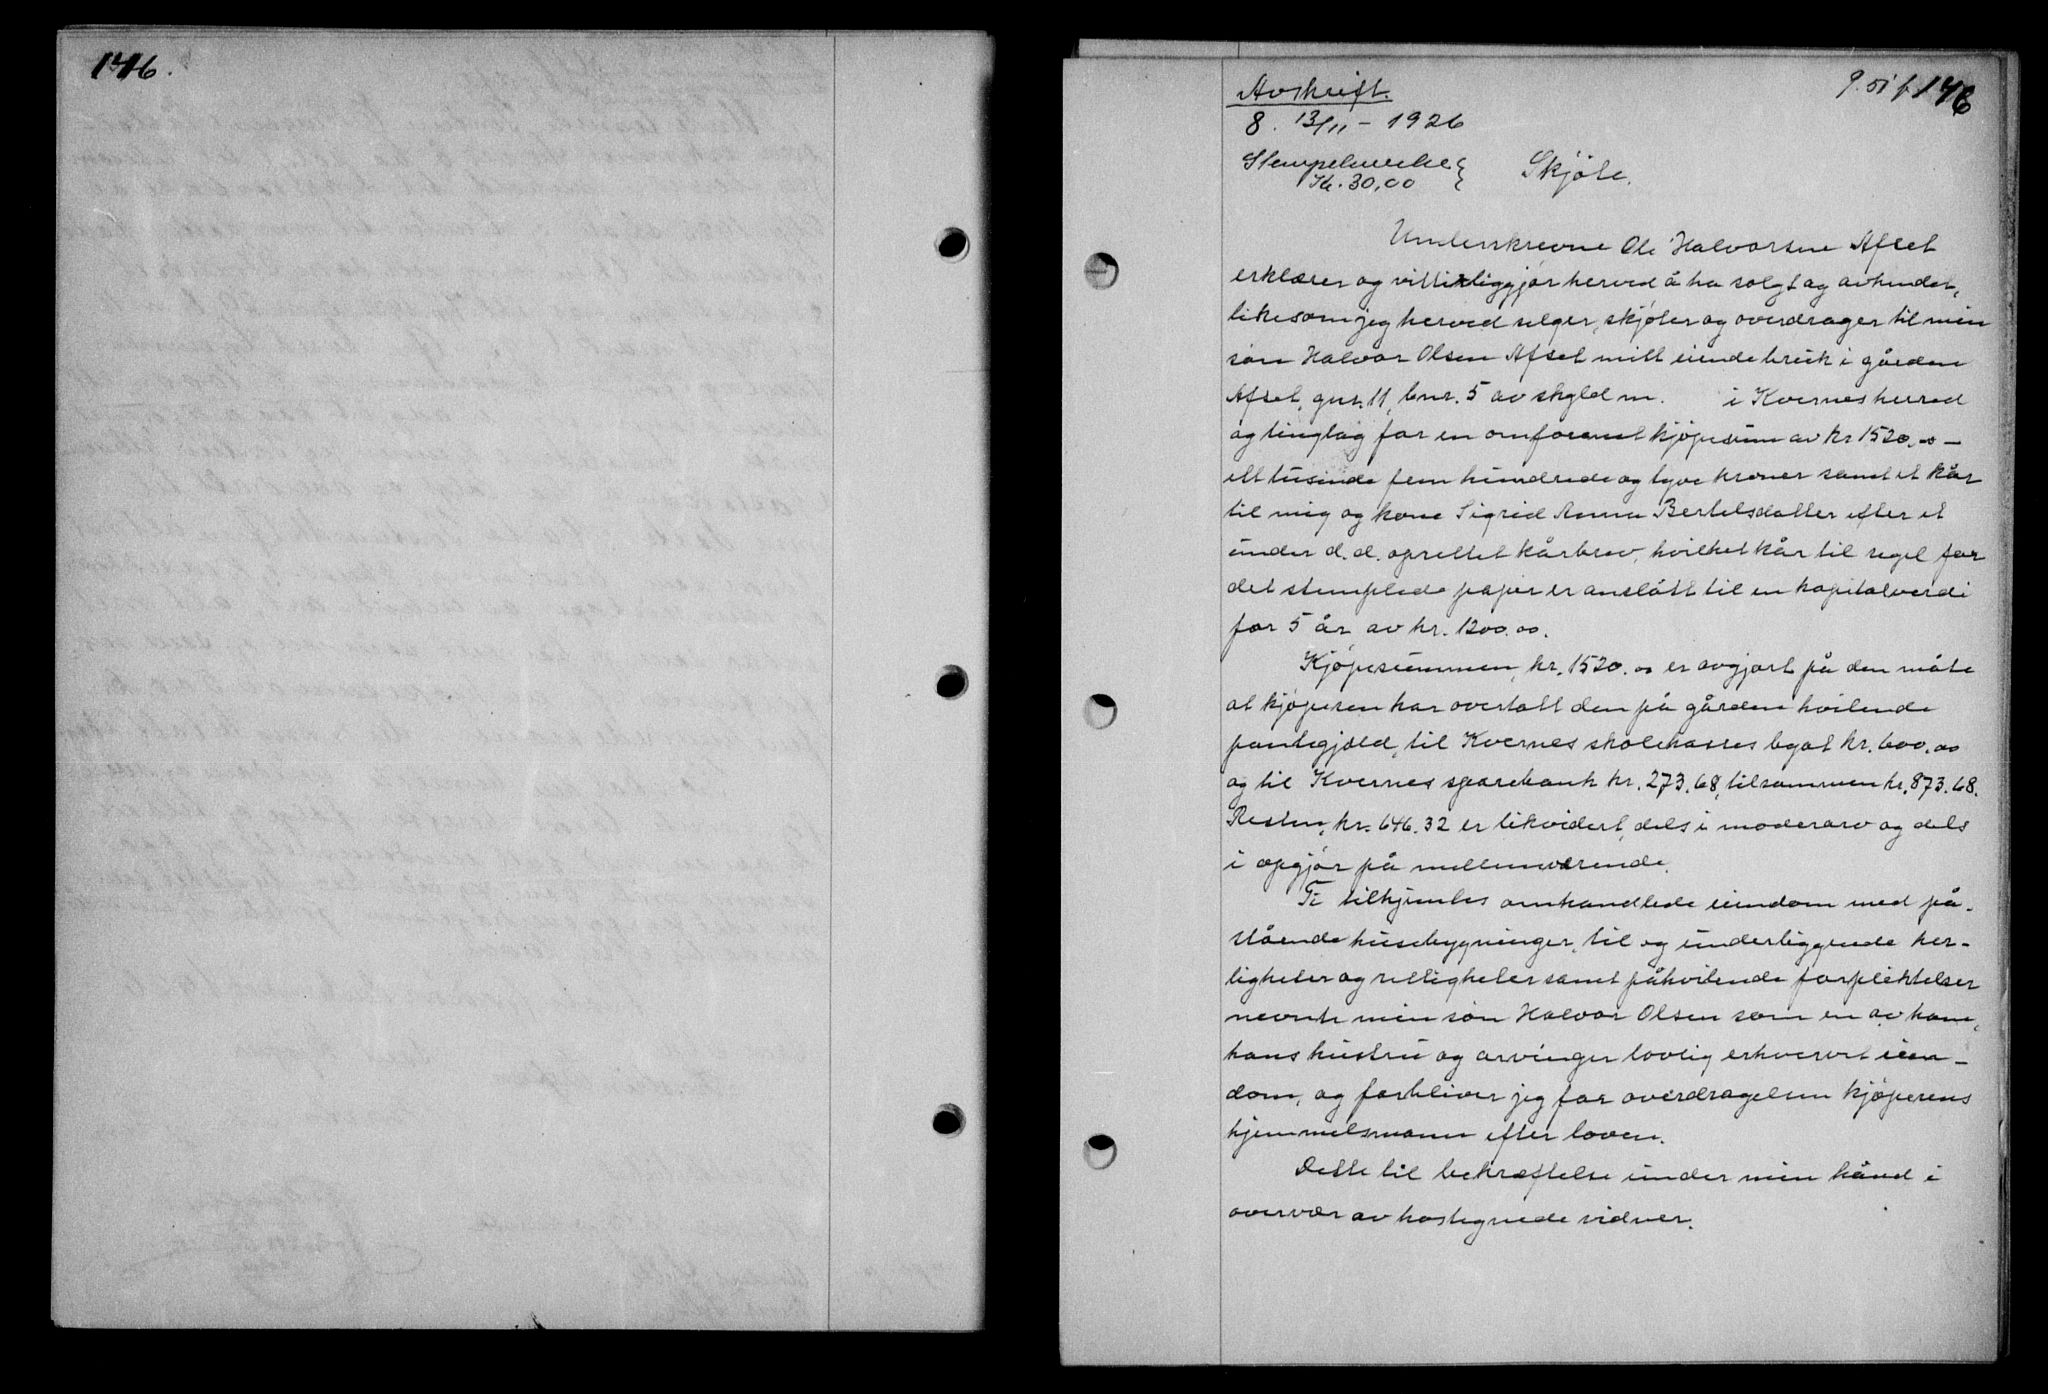 146.
Avskrift.
9. 51 f 146
8. 13/11 - 1926
Stempelmerke
Kr. 30,00
Skjøte.
Underskrevne Ole Halvorsen Afset
erklærer og vitterliggjør herved å ha solgt og avhendet,
likesom jeg herved selger, skjøter og overdrager til min
søn Halvor Olsen Afset mitt eiende bruk i gården
Afset, gnr. 11, bnr. 5 av skyld m. i Kvernes herred
og tinglag for en omforenet kjøpesum av kr 1520,-o-
ett tusinde fem hundrede og tyve kroner samt et kår
til mig og kone Sigrid Anna Bertelsdatter efter et
under d. d. oprettet kårbrev, hvilket kår til regel for
det stemplede papir er anslått til en kapitalverdi
for 5 år av kr. 1200.oo.
Kjøpesummen, kr. 1520.oo er avgjort på den måte
at kjøperen har overtatt den på gården hvilende
pantegjeld, til Kvernes skolekasses legat kr. 600.oo
og til Kvernes sparebank kr. 273.68, tilsammen kr. 873.68.
Resten, kr. 646.32 er likvidert, dels i modersarv og dels
i opgjør på mellemværende.
Ti tilhjemles omhandlede eiendom med på-
stående husebygninger, til og underliggende her-
ligheter og rettigheter samt påhvilende forpliktelser
nevnte min søn Halvor Olsen som en av ham,
hans hustru og arvinger lovlig erhvervet eien-
dom, og forbliver jeg for overdragelsen kjøperens
hjemmelsmann efter loven.
Dette til bekræftelse under min hånd i
overvær av hostegnede vidner.